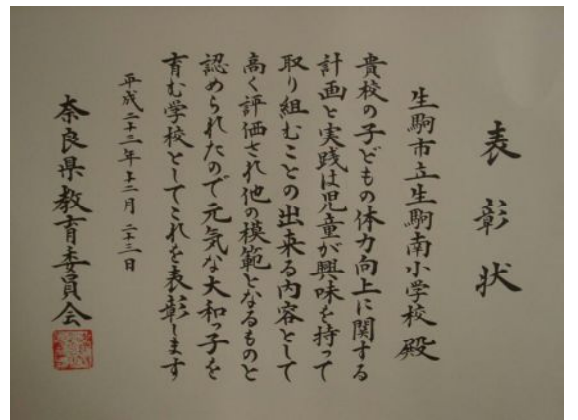 表彰状
生駒市立生駒南小学校 殿
貴校の子どもの体力向上に関する
計画と実践は児童が興味を持って
取り組むことの出来る内容として
高く評価され他の模範となるものと
認められたので元気な大和っ子を
育む学校としてこれを表彰します
平成二十三年十二月二十三日
奈良県教育委員会